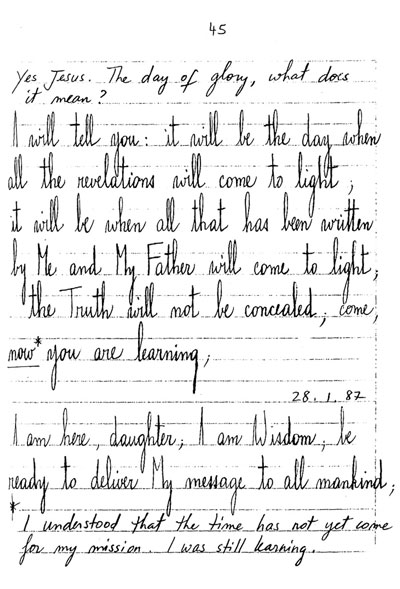 45
Yes Jesus. The day of glory, what does
it mean?
I will tell you: it will be the day when
all the revelations will come to light;
it will be when all that has been written
by Me and My Father will come to light;
the Truth will not be concealed; come,
now* you are learning;
28.1.87
I am here, daughter; I am Wisdom; be
ready to deliver My message to all mankind;
*
I understood that the time has not yet come
for my mission. I was still learning.